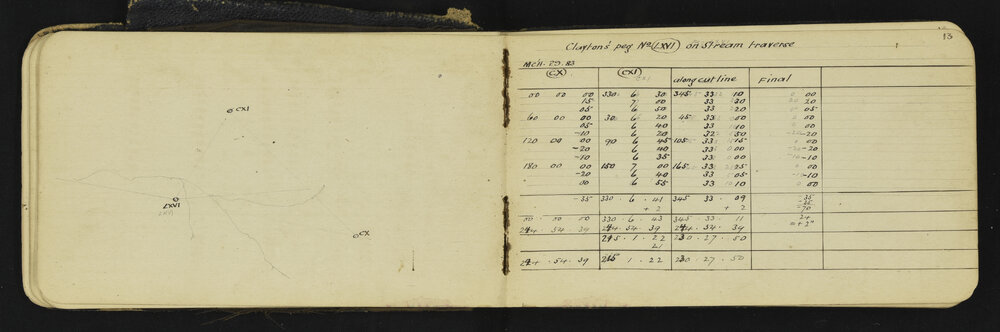 CXI
LXVI
LXVI
CX
13
Clayton's peg No (LXVI) on stream traverse
(CX) (CXI) along cut line Final
00 00 00 330 6 30 345 33 10 00
15 7 00 33 30 20
05 6 50 33 20 05
60 00 00 30 6 20 45 33 00 00
05 6 40 33 10 00
-10 6 20 33 -20
120 00 00 90 6 45 105 33 15 00
-20 6 40 33 00 -20
-10 6 35 33 00 -10
180 00 00 150 7 00 165 33 25 00
-20 6 40 33 05 -10
00 6 55 33 10 00
-35 330 · 6 · 41 345 · 33 · 09 -35
+ 2 + 2 -70
00 · 00 · 00 330 · 6 · 43 345 · 33 · 11 24
244 · 54 · 39 244 · 54 · 39 244 · 54 · 39 = + 2"
215 · 1 · 22 230 · 27 · 50
21
244 · 54 · 39 215 · 1 · 22 230 · 27 · 50